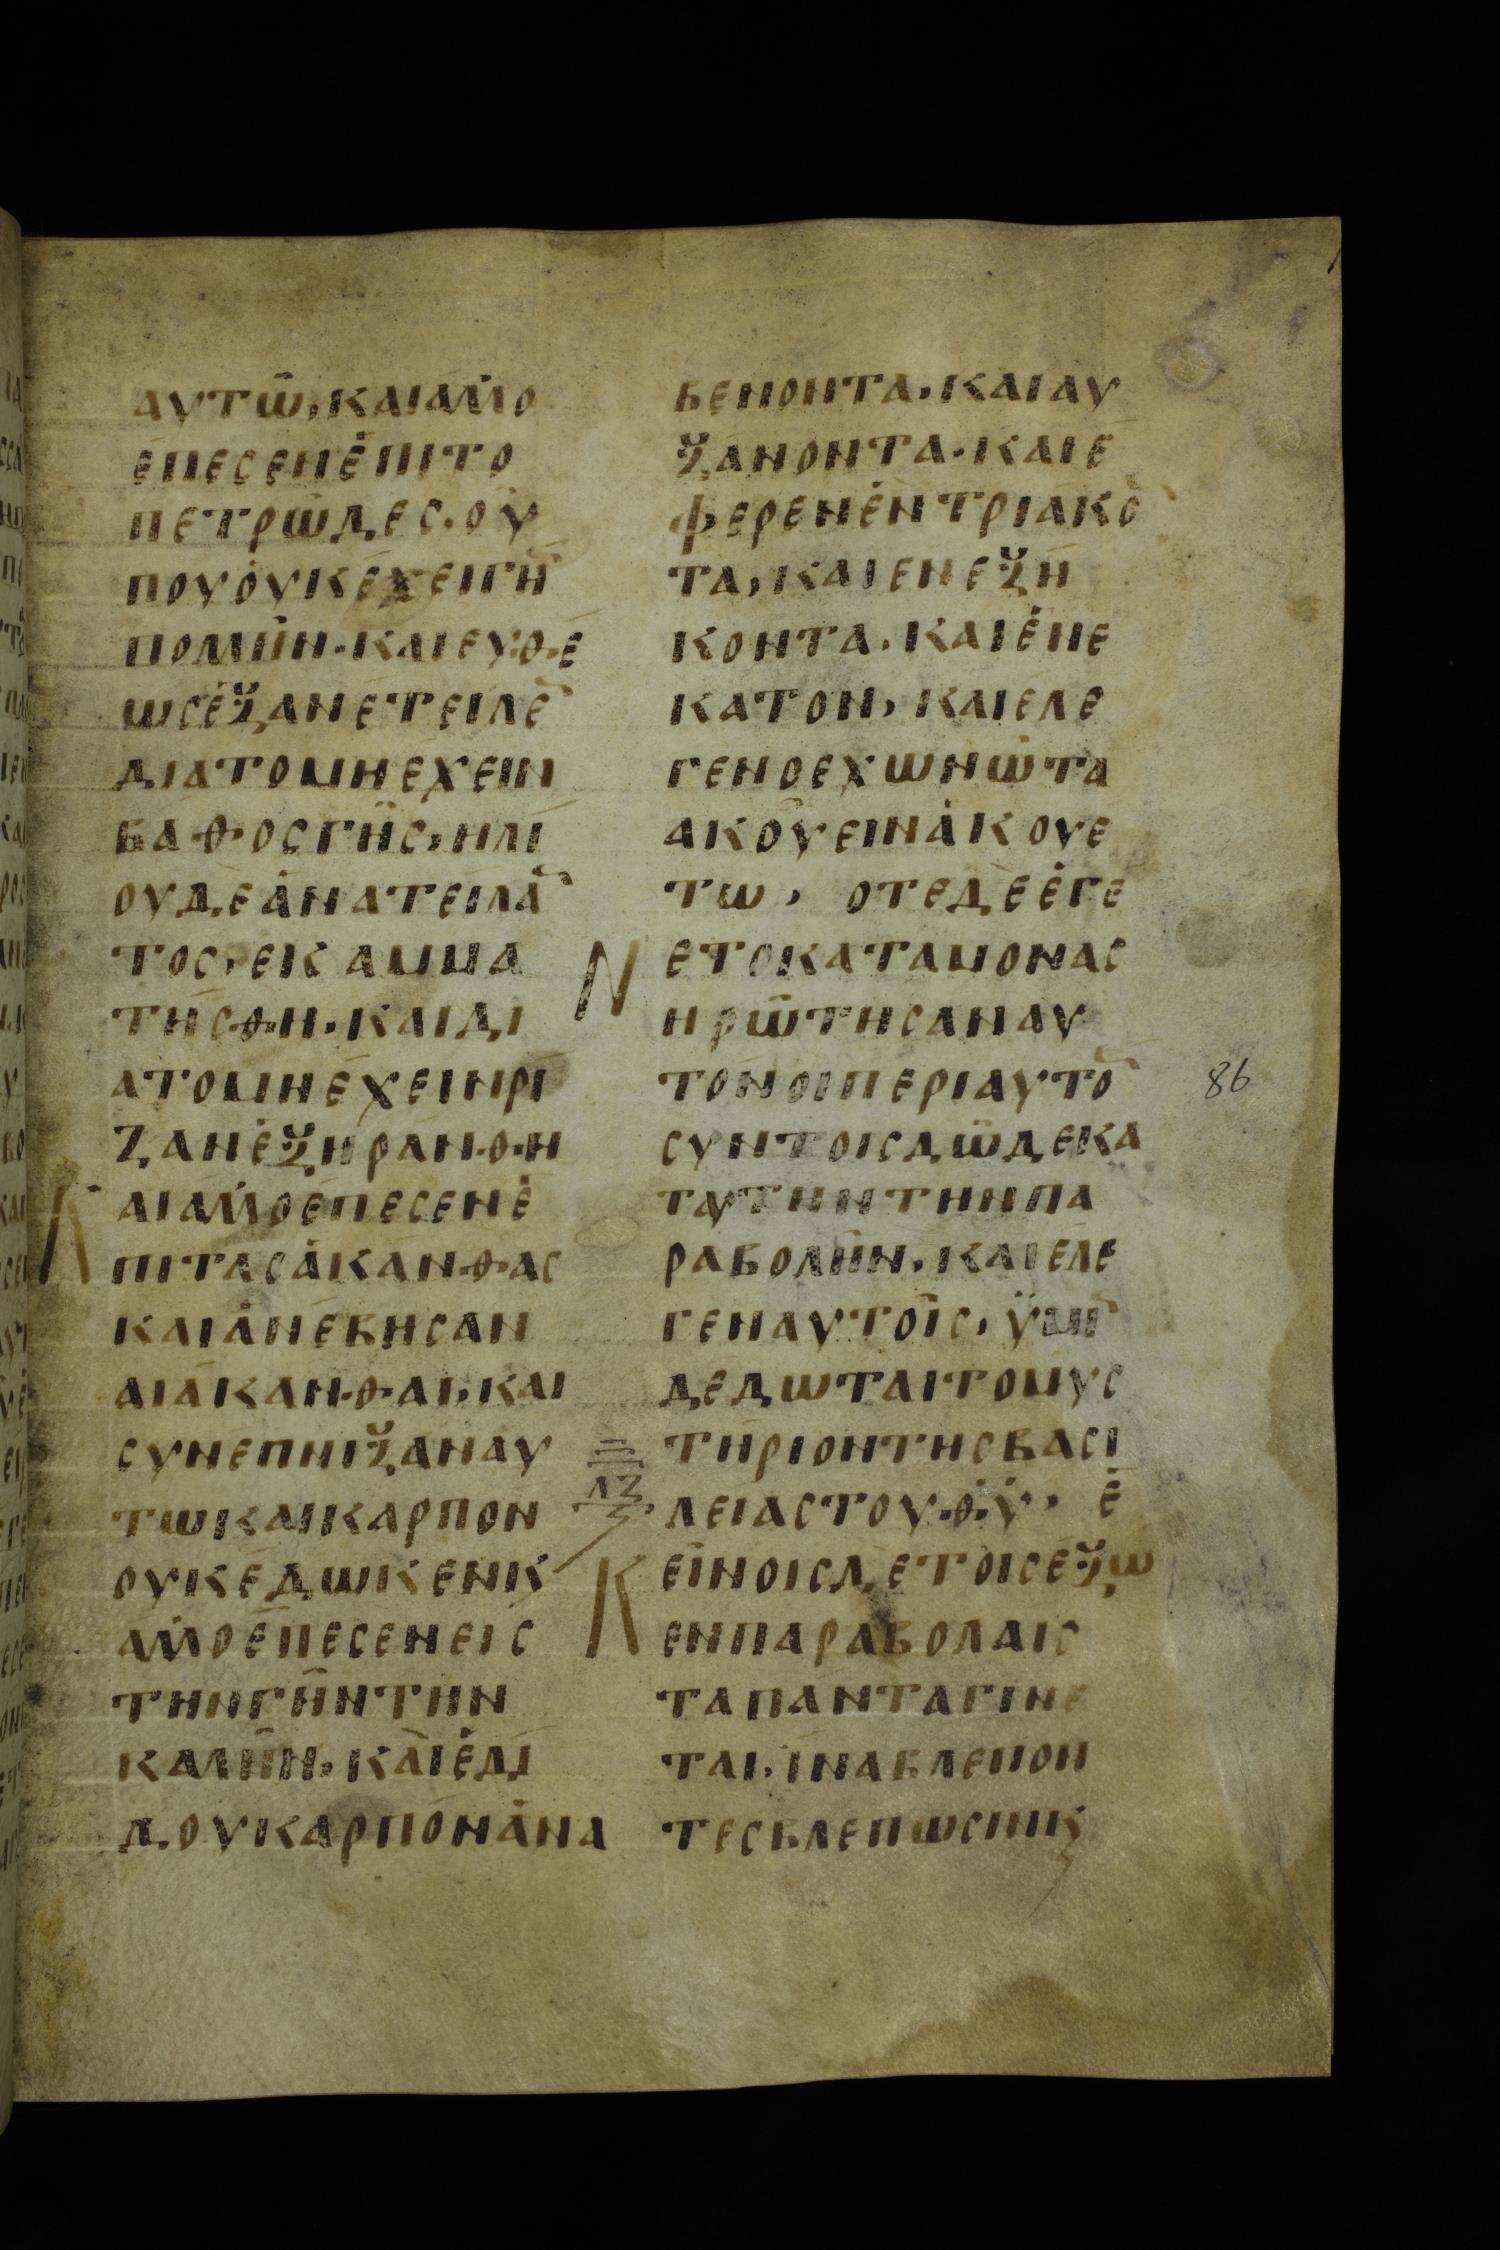 ΑΥΤΩ͂, ΚΑΙΑΛΛΟ
ΕΠΕΣΕΝΕΠΙΤΟ
ΠΕΤΡΩΔΕΣ. ΟΥ
ΠΟΥΟΥΚΕΧΕΙΓΗ̅
ΠΟΛΛΗΝ. ΚΑΙΕΥΘΕ
ΩΣΕΞΑΝΕΤΕΙΛΕ̅
ΔΙΑΤΟΜΗΕΧΕΙΝ
ΒΑΘΟΣΓΗΣ, ΗΛΙ
ΟΥΔΕΑΝΑΤΕΙΛΑ̅
ΤΟΣ, ΕΚΑΜΜΑ
ΤΗΣΘΗ. ΚΑΙΔΙ
ΑΤΟΜΗΕΧΕΙΝΡΙ
ΖΑΝΕΞΗΡΑΝΘΗ
ΚΑΙΑΛΛΟΕΠΕΣΕΝΕ
ΠΙΤΑΣΑΚΑΝΘΑΣ
ΚΑΙΑΝΕΒΗΣΑΝ
ΑΙΑΚΑΝΘΑΙ, ΚΑΙ
ΣΥΝΕΠΗΙΞΑΝΑΥ
ΤΩΚΑΙΚΑΡΠΟΝ
ΟΥΚΕΔΩΚΕΝΚ
ΑΛΛΟΕΠΕΣΕΝΕΙΣ
ΤΗΝΓΗΝΤΗΝ
ΚΑΛΗΝ, ΚΑΙΕΔΙ
ΔΟΥΚΑΡΠΟΝΑΝΑ
ΒΕΝΟΝΤΑ, ΚΑΙΑΥ
ΞΑΝΟΝΤΑ. ΚΑΙΕ
ΦΕΡΕΝΕΝΤΡΙΑΚΟ̅
ΤΑ, ΚΑΙΕΝΕΞΗ
ΚΟΝΤΑ. ΚΑΙΕΝΕ
ΚΑΤΟΝ, ΚΑΙΕΛΕ
ΓΕΝΟΕΧΩΝΩΤΑ
ΑΚΟΥΕΙΝΑΚΟΥΕ
ΤΩ, ΟΤΕΔΕΕΓΕ
ΝΕΤΟΚΑΤΑΜΟΝΑΣ
ΗΡΩΤΗΣΑΝΑΥ
ΤΟΝΟΙΠΕΡΙΑΥΤΟ̅
86
ΣΥΝΤΟΙΣΔΩΔΕΚΑ
ΤΑΥΤΗΝΤΗΝΠΑ
ΡΑΒΟΛΗΝ. ΚΑΙΕΛΕ
ΓΕΝΑΥΤΟΙΣ, ΫΜΙ̅
ΔΕΔΩΤΑΙΤΟΜΥΣ
ΤΗΡΙΟΝΤΗΣΒΑΣΙ
ΛΖ
ΛΕΙΑΣΤΟΥΘΥ, Ε
ΚΕΙΝΟΙΣΔΕΤΟΙΣΕΞΩ
ΕΝΠΑΡΑΒΟΛΑΙΣ
ΤΑΠΑΝΤΑΓΙΝΕ
ΤΑΙ. ΪΝΑΒΛΕΠΟΝ
ΤΕΣΒΛΕΠΩΣΙΝΚ